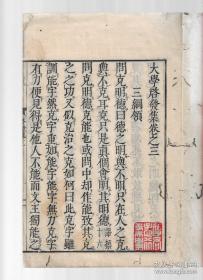 大學啓發集卷之三
三綱領
問克明德曰德之明與不明只在人之克
與不克耳克只是真個會明其明德
問克明德克能也或問中却作能致其克
之之功又似克治之克如何曰此克字雖
訓能字然克字重如能字能字無力克字
有力便見得是他人不能而文王獨能之